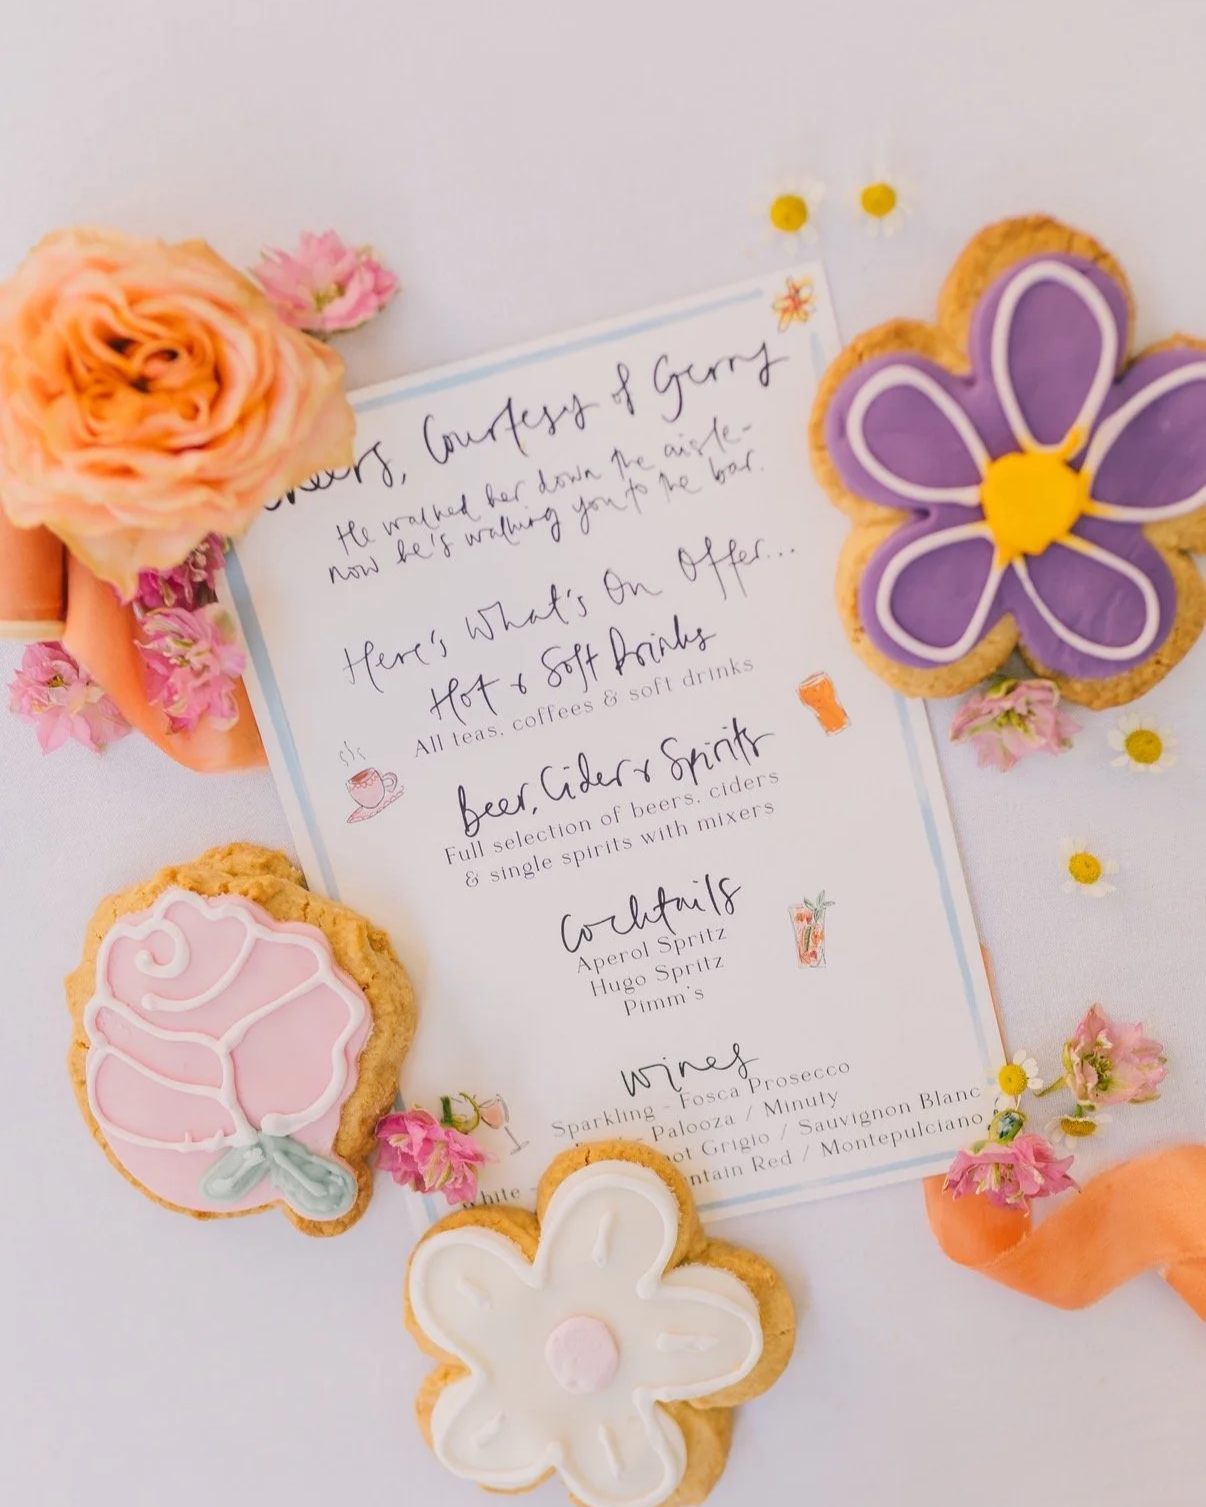 Cheers, Courtesy of Gerry
He walked her down the aisle-
now he's walking you to the bar.
Here's What's On Offer...
Hot & Soft Drinks
All teas, coffees & soft drinks
Beer, Cider & Spirits
Full selection of beers, ciders
& single spirits with mixers
Cocktails
Aperol Spritz
Hugo Spritz
Pimm's
Wines
Sparkling - Fosca Prosecco
- Palooza / Minuty
White - Grigio / Sauvignon Blanc
Red / Montepulciano